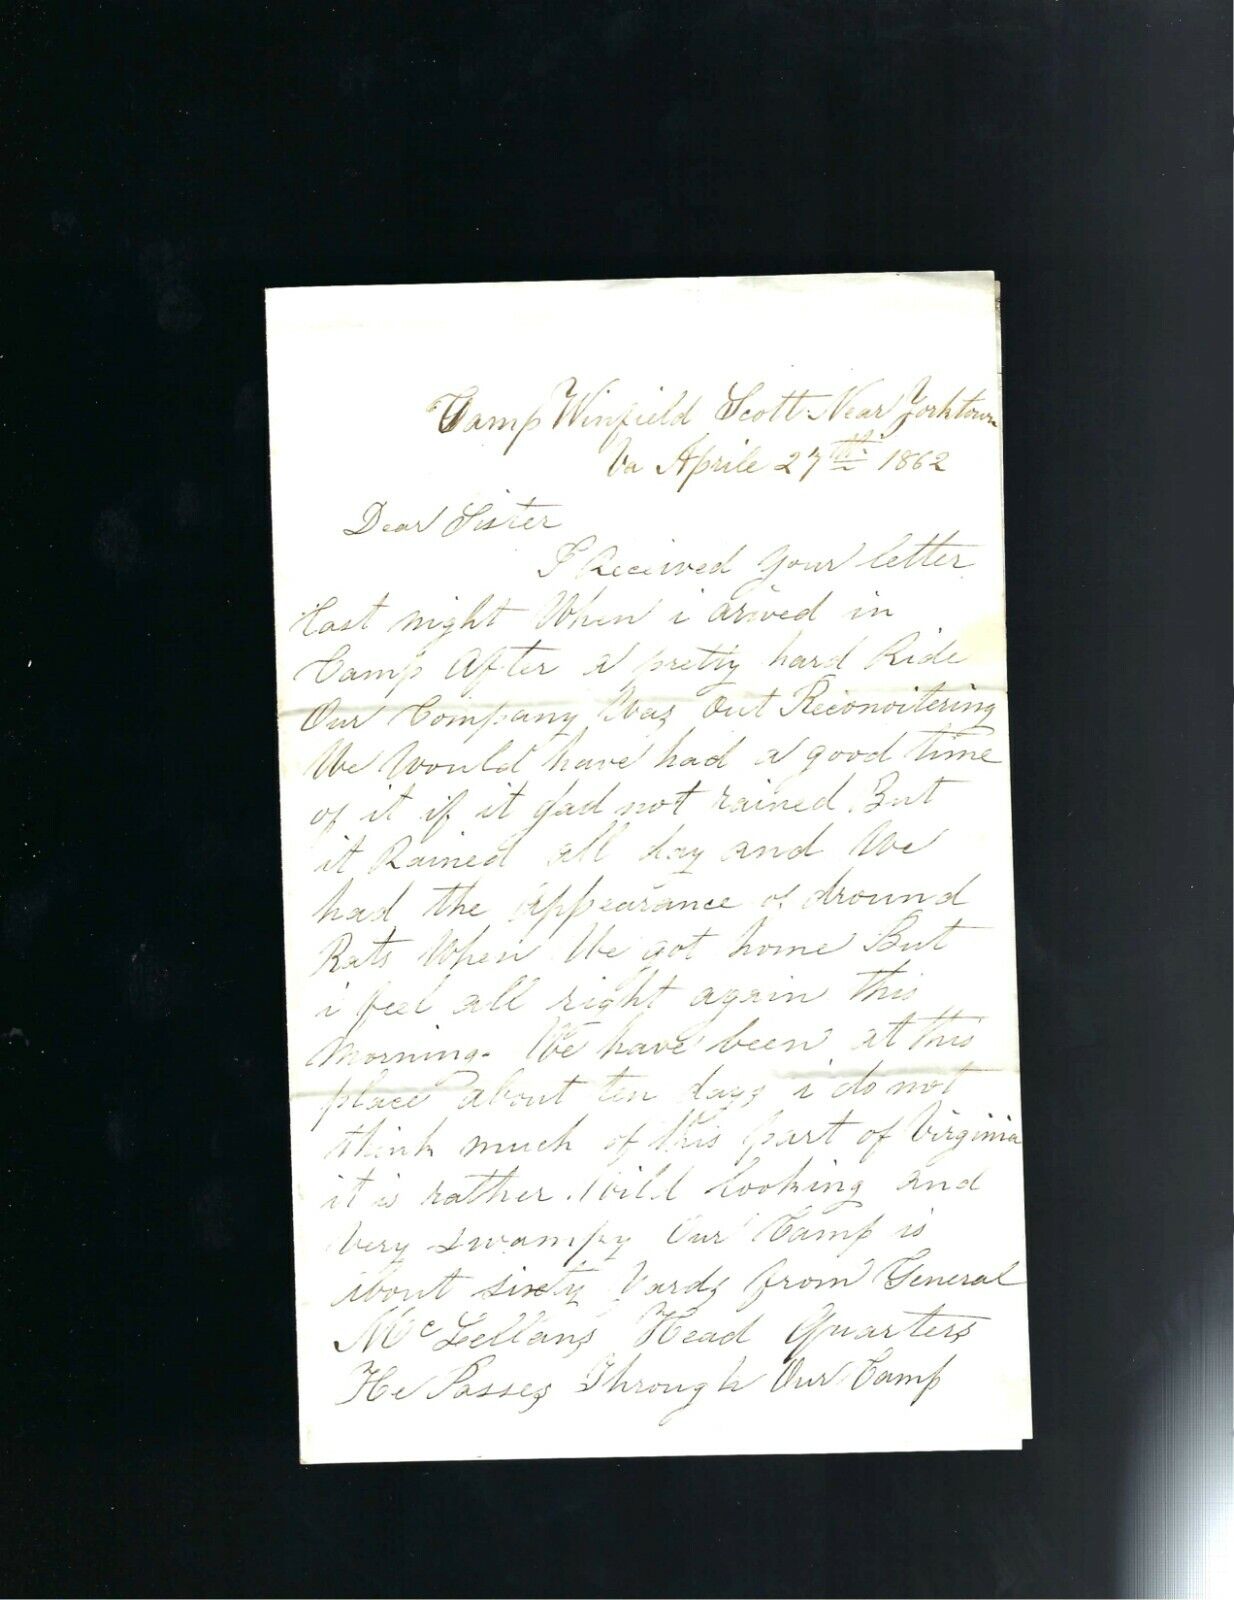 Camp Winfield Scott Near Yorktown
Va Aprile 27th 1862
Dear Sister
I Received your letter
Last night When i arived in
Camp After a pretty hard Ride
Our Company Was out Reconoitering
We Would have had a good time
of it if it had not rained But
it Rained all day and We
had the appearance of dround
Rats When We got home But
i feel all right again this
morning. We have been at this
place about ten days i do not
think much of this part of Virginia
it is rather Wild looking and
very swampy Our Camp is
about sixty Yards from General
McLellans Head Quarters
He Passes Through Our Camp